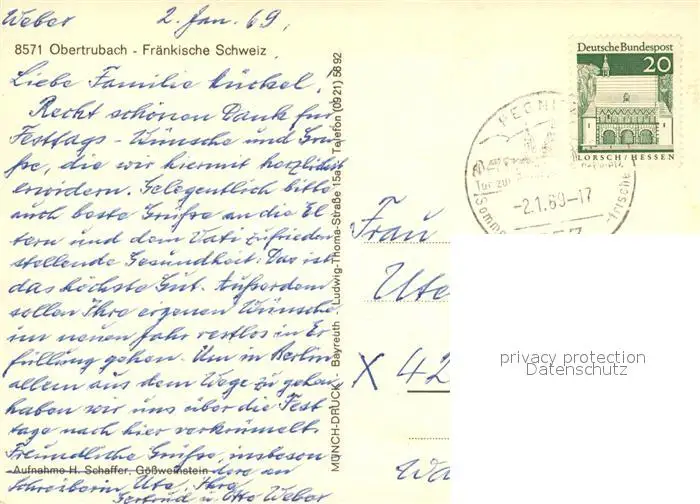 Weber 2. Jan. 69.
8571 Obertrubach - Fränkische Schweiz
Liebe Familie Kückel.
Recht schönen Dank für
Festtags-Wünsche und Grü-
ße, die wir hiermit herzlichst
erwidern. Gelegentlich bitte
auch beste Grüße an die El-
tern und dem Vati zufrieden
stellende Gesundheit: Das ist
das höchste Gut. Außerdem
sollen Ihre eigenen Wünsche
im neuen Jahr restlos in Er-
füllung gehen. Um in Berlin
allem aus dem Wege zu gehen,
haben wir uns über die Fest
tage nach hier verkrümelt.
Freundliche Grüße, insbeson
Aufnahme H. Schaffer, Gößweinstein
dere an
Schreiberin Ute, Ihre
Gertrud u. Otto Weber
MÜNCH-DRUCK Bayreuth Ludwig-Thoma-Straße 15a Telefon (09 21) 56 92
Deutsche Bundespost
20
LORSCH/HESSEN
PEGNITZ
Tor zur
-2.1.69-17
Somme
frische
Frau
Ute
X 42
privacy protection
Datenschutz